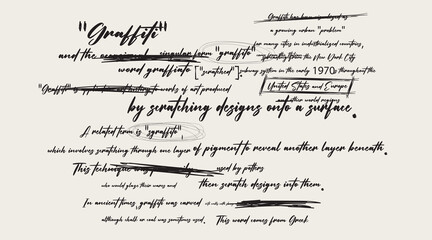 "Graffiti"
and the singular form "graffito"
word graffiato ["scratched"].
works of art produced
by scratching designs onto a surface.
A related term is "sgraffito"
which involves scratching through one layer of pigment to reveal another layer beneath.
This used by potters
who would glaze their wares and then scratch designs into them.
In ancient times, graffiti was carved
although chalk or coal was sometimes used. This word comes from Greek
Graffiti has been
a growing urban "problem"
for many cities in industrialized countries,
the New York City
subway system in the early 1970s throughout the
United States and Europe
other world regions